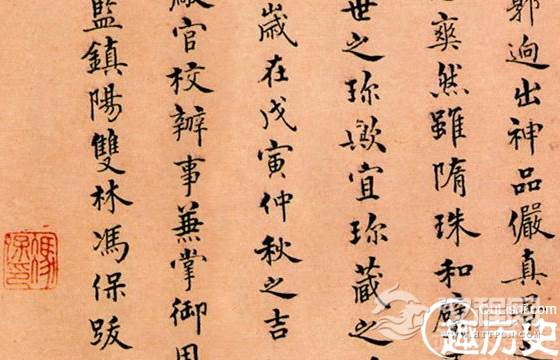 郭逈出神品儼真
之爽然雖隋珠和璧
世之珍歟宜珍藏之
歲在戊寅仲秋之吉
廠官校辦事兼掌御用
監鎮陽雙林馮保跋
趣历史